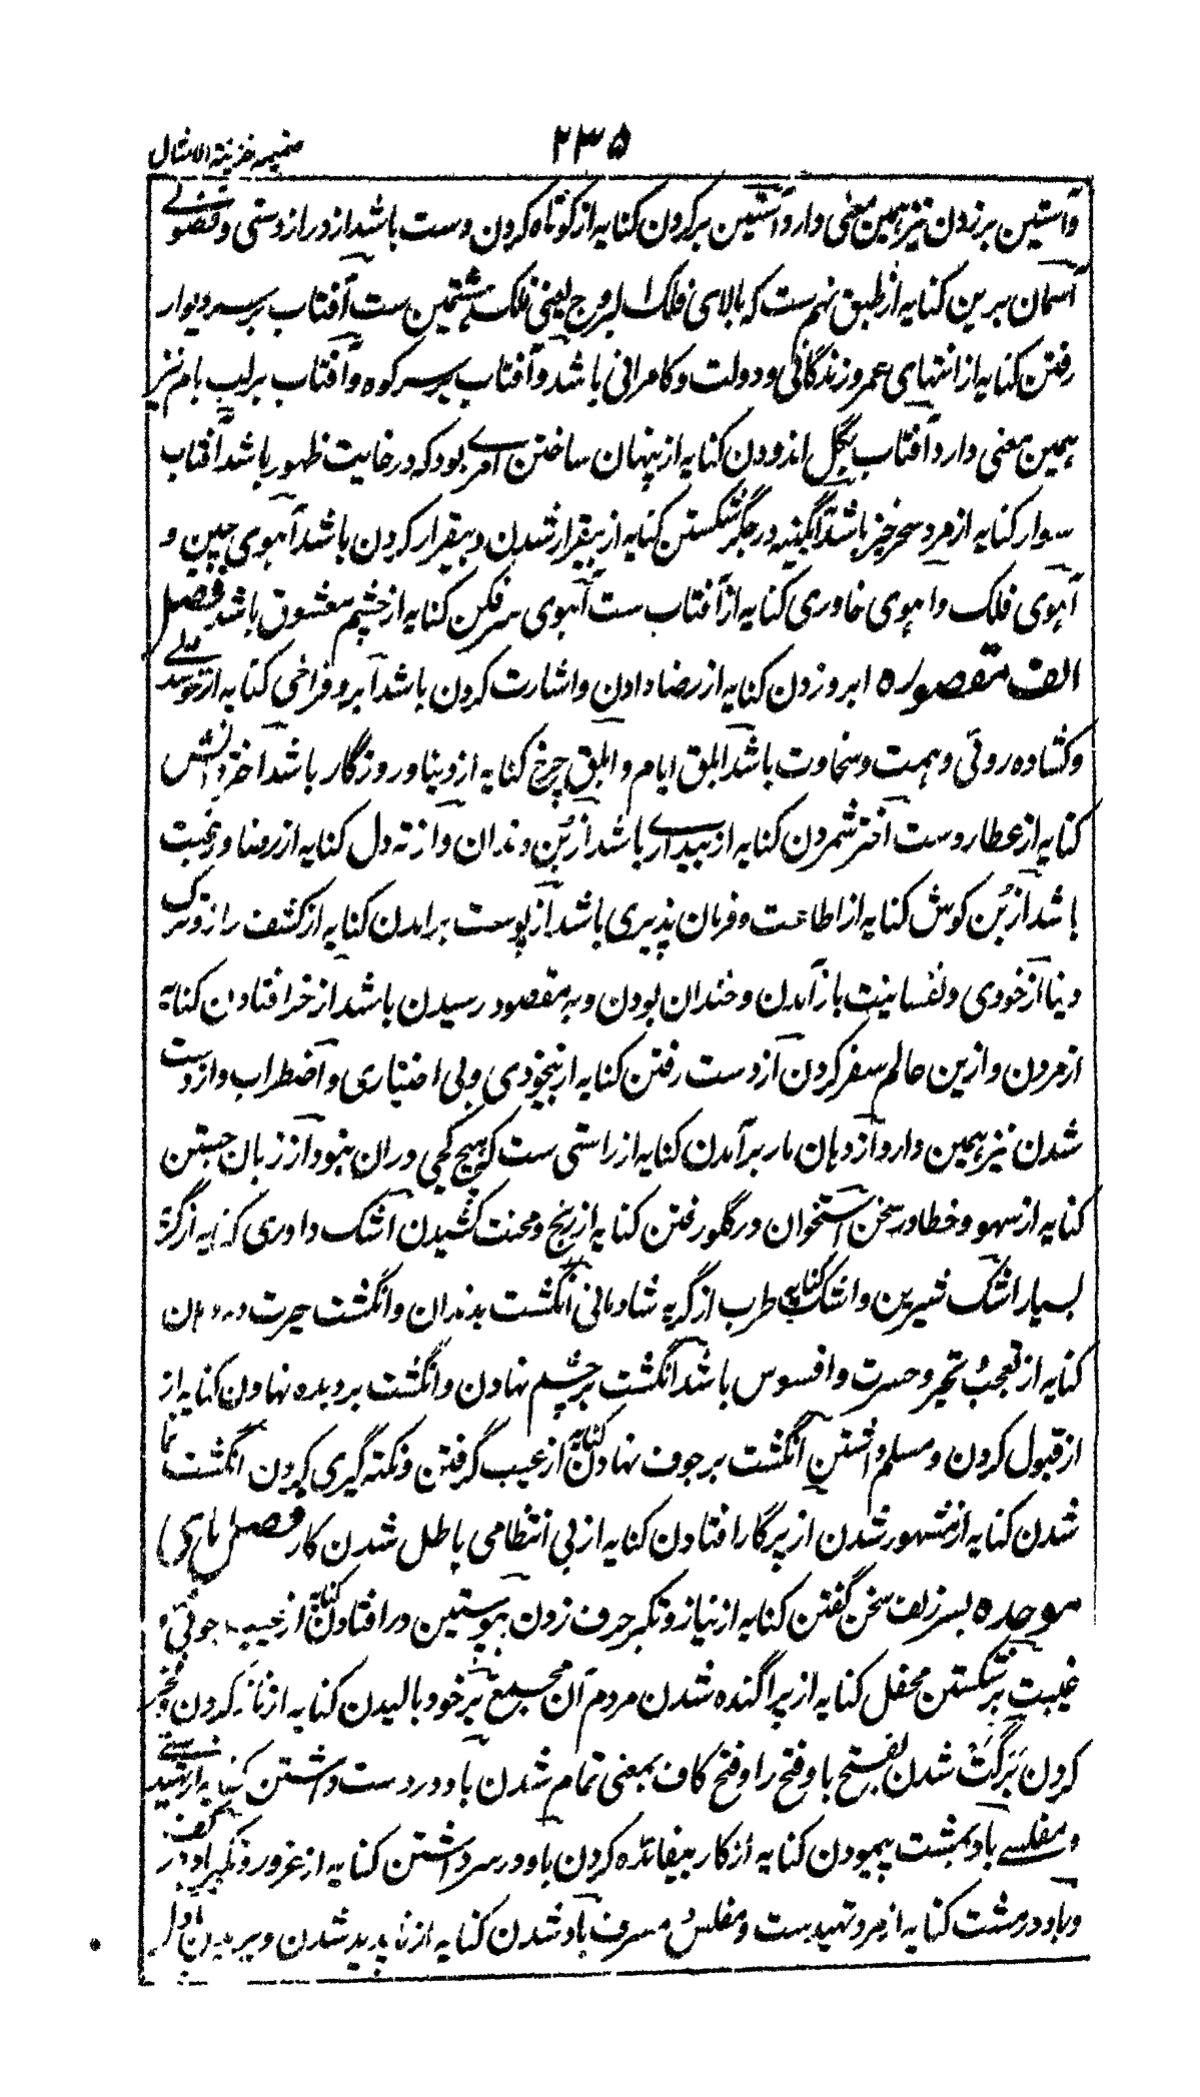 ۲۳۵
ضمیمہ خزینۃ الامثال
وآستین برزدن نیز ہمین معنی دارد آستین برکردن کنایہ از کوتاہ کردن دست باشد از دراز دستی و فضولے
آسمان برین کنایہ از طبق نہم ست کہ بالای فلک البروج یعنی فلک ہشتمین ست آفتاب برسر دیوار
رفتن کنایہ از انتہای عمر و زندگانی و دولت و کامرانی باشد و آفتاب برسر کوہ و آفتاب برلب بام نیز
ہمین معنی دارد آفتاب بگل اندودن کنایہ از پنہان ساختن امرے بود کہ در غایت ظہور باشد آفتاب
سوار کنایہ از مرد سحر خیز باشد آبگینہ در جگر شکستن کنایہ از بیقرار شدن و بیقرار کردن باشد آہوی چین و
آہوی فلک و آہوی خاوری کنایہ از آفتاب ست آہوی سرفکن کنایہ از چشم معشوق باشد فصل
الف مقصورہ ابرو زدن کنایہ از رضا دادن و اشارت کردن باشد آبرو فراخی کنایہ از خوشدلے
و کشادہ روئی و ہمت و سخاوت باشد ابلق ایام و ابلق چرخ کنایہ از دنیا و روزگار باشد اختر دانش
کنایہ از عطارد ست اختر شمردن کنایہ از بیدارے باشد از بُن دندان و از تہ دل کنایہ از رضا و رغبت
باشد از بُن گوش کنایہ از اطاعت و فرمان پذیری باشد از پوست برامدن کنایہ از کشف راز و ترک
دنیا از خودی و نفسانیت باز آمدن و خندان بودن و بہ مقصود رسیدن باشد از خر افتادن کنایہ
از مردن و ازین عالم سفر کردن از دست رفتن کنایہ از بیخودی و بی اختیاری و اضطراب و از دست
شدن نیز ہمین دارد از دہان مار برآمدن کنایہ از راستی ست کہ ہیچ کجی دران نبود از زبان جستن
کنایہ از سہو و خطا در سخن استخوان در گلو رفتن کنایہ از رنج و محنت کشیدن اشک داودی کنایہ از گریۂ
بسیار اشک شیرین و اشک طرب کنایہ از گریہ شادمانی انگشت بدندان و انگشت حیرت در دہان
کنایہ از تعجب و تحیر و حسرت و افسوس باشد انگشت برچشم نہادن و انگشت بردیدہ نہادن کنایہ از
از قبول کردن و مسلم داشتن انگشت برحرف نہادن کنایہ از عیب گرفتن و نکتہ گیری کردن انگشت نما
شدن کنایہ از مشہور شدن از پرگار افتادن کنایہ از بی انتظامی باطل شدن کار فصل بای
موحدہ بسر زلف سخن گفتن کنایہ از نیاز و تکبر حرف زدن بپوستین در افتادن کنایہ از عیب جوئی و
غیبت برشکستن محفل کنایہ از پراگندہ شدن مردم آن مجمع برخود بالیدن کنایہ از ناز کردن و فخر
کردن بَرگَت شدن بفتح با و فتح را و فتح کاف بمعنی تمام شدن باد در دست داشتن کنایہ از تہیدستی
و مفلسے باد بمشت پیمودن کنایہ از کار بیفائدہ کردن باد در سر داشتن کنایہ از غرور و تکبر باد در کف
و باد در مشت کنایہ از مرد تہیدست و مفلس و مسرف باد شدن کنایہ از ناپدید شدن و پریدن